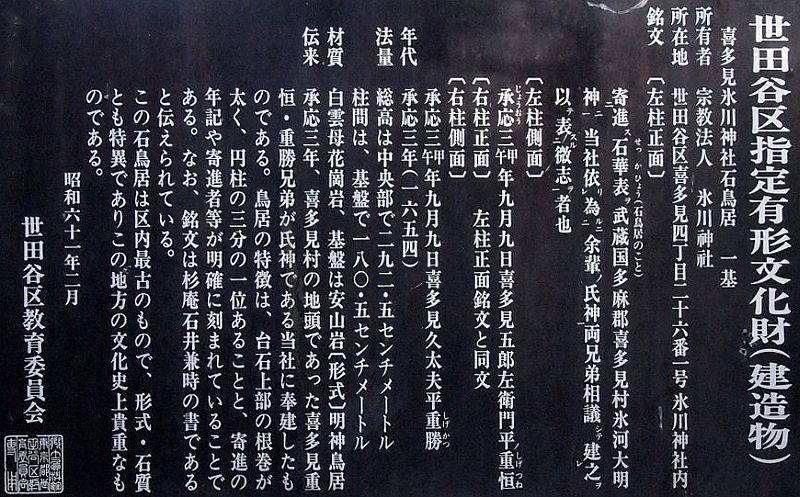 世田谷区指定有形文化財(建造物)
喜多見氷川神社石鳥居　一基
所有者　宗教法人　氷川神社
所在地　世田谷区喜多見四丁目二十六番一号 氷川神社内
銘文　〔左柱正面〕
寄進ス石華表(せっかひょう)(石鳥居のこと)ヲ武蔵国多麻郡喜多見村氷河大明
神ニ 当社依レ為ルニ余輩ノ氏神一両兄弟相議シテ建レ之ヲ
以テ表スル微志ヲ者也
〔左柱側面〕
承応(じょうおう)三甲午年九月九日喜多見五郎左衛門平重恒(しげつね)
〔右柱正面〕　左柱正面銘文と同文
〔右柱側面〕
承応三甲午年九月九日喜多見久太夫平重勝(しげかつ)
年代　承応三年(一六五四)
法量　総高は中央部で二九二・五センチメートル
柱間は、基盤で一八〇・五センチメートル
材質　白雲母花崗岩、基盤は安山岩〔形式〕明神鳥居
伝来　承応三年、喜多見村の地頭であった喜多見重
恒・重勝兄弟が氏神である当社に奉建したも
のである。鳥居の特徴は、台石上部の根巻が
太く、円柱の三分の一位あることと、寄進の
年記や寄進者等が明確に刻まれていることで
ある。なお、銘文は杉庵石井兼時の書である
と伝えられている。
この石鳥居は区内最古のもので、形式・石質
とも特異でありこの地方の文化史上貴重なも
のである。
昭和六十一年二月
世田谷区教育委員会